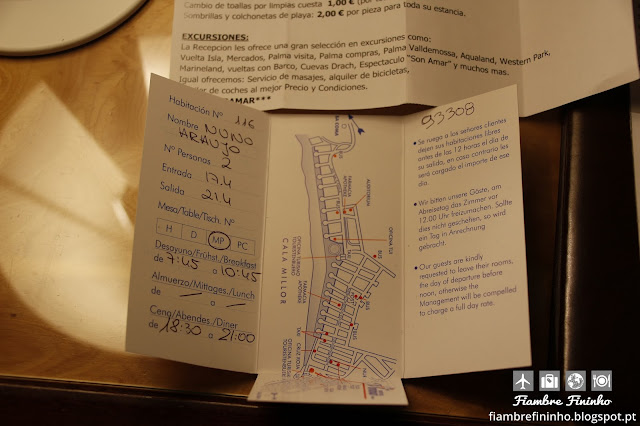 Cambio de toallas por limpias cuesta 1,00 €
Sombrillas y colchonetas de playa: 2,00 € por pieza para toda su estancia.
EXCURSIONES:
La Recepcion les ofrece una gran selección en excursiones como:
Vuelta Isla, Mercados, Palma visita, Palma compras, Palma Valldemossa, Aqualand, Western Park,
Marineland, vueltas con Barco, Cuevas Drach, Espectaculo "Son Amar" y muchos mas.
Igual ofrecemos: Servicio de masajes, alquiler de bicicletas,
de coches al mejor Precio y Condiciones.
AMAR***
Habitación Nº 116
Nombre NUNO
ARAUJO
Nº Personas 2
Entrada 17.4
Salida 21.4
Mesa/Table/Tisch. Nº
H D MP PC
Desayuno/Frühst./Breakfast
de 7:45 a 10:45
Almuerzo/Mittages./Lunch
de — a —
Cena/Abendes./Diner
de 18:30 a 21:00
CALA MILLOR
AUDITORIUM
OFICINA TUI
BUS
FARMACIA
TAXI
93308
• Se ruega a los señores clientes
dejen sus habitaciones libres
antes de las 12 horas el día de
su salida, en caso contrario les
será cargado el importe de ese
día.
• Wir bitten unsere Gäste, am
Abreisetag das Zimmer vor
12.00 Uhr freizumachen. Sollte
dies nicht geschehen, so wird
ein Tag in Anrechnung
gebracht.
• Our guests are kindly
requested to leave their rooms,
the day of departure before
noon, otherwise the
Management will be compelled
to charge a full day rate.
Fiambre Fininho
fiambrefininho.blogspot.pt